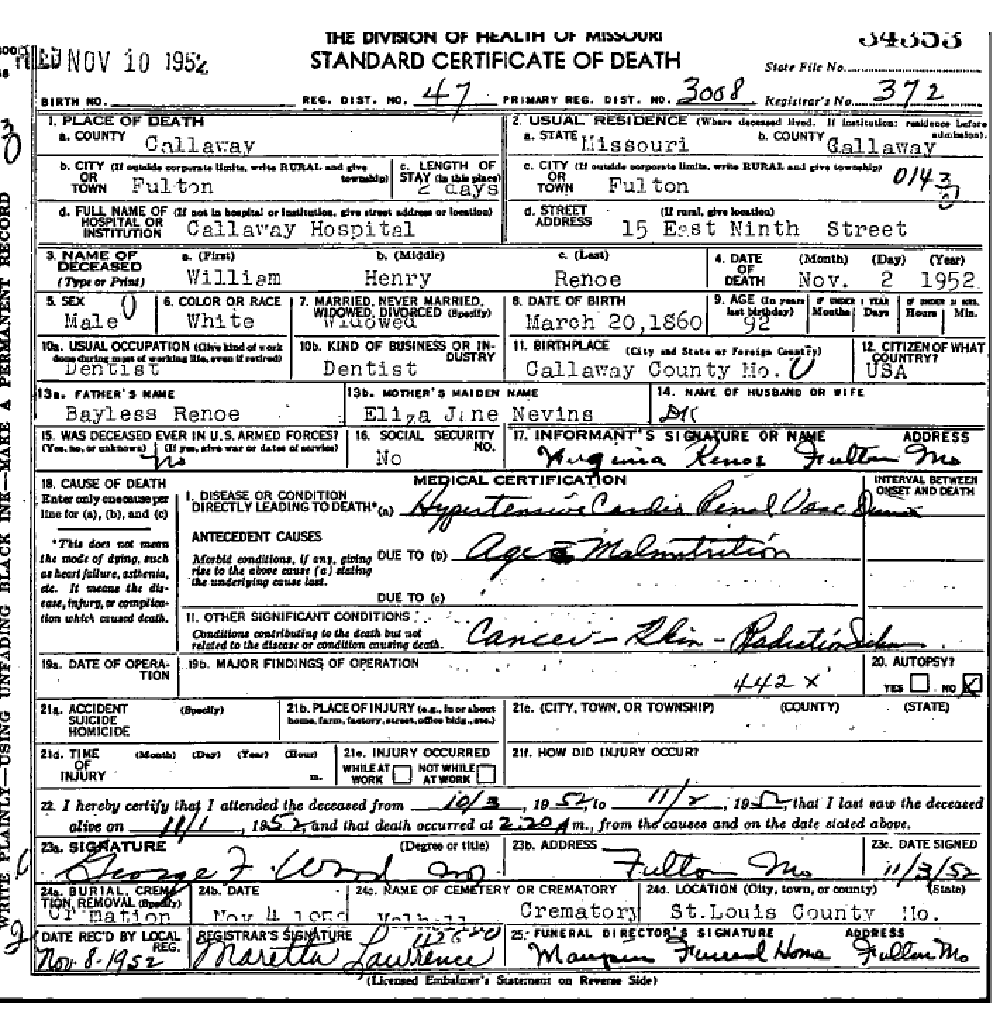 THE DIVISION OF HEALTH OF MISSOURI
FILED NOV 10 1952 STANDARD CERTIFICATE OF DEATH State File No. 34353
BIRTH NO. REG. DIST. NO. 47 PRIMARY REG. DIST. NO. 3008 Registrar's No. 372
1. PLACE OF DEATH
a. COUNTY Callaway
2. USUAL RESIDENCE (Where deceased lived. If institution: residence before admission).
a. STATE Missouri b. COUNTY Callaway
b. CITY (If outside corporate limits, write RURAL and give township) OR TOWN Fulton
c. LENGTH OF STAY (in this place) 2 days
c. CITY (If outside corporate limits, write RURAL and give township) OR TOWN Fulton 0143
d. FULL NAME OF (If not in hospital or institution, give street address or location) HOSPITAL OR INSTITUTION Callaway Hospital
d. STREET ADDRESS (If rural, give location) 15 East Ninth Street
3. NAME OF DECEASED (Type or Print) a. (First) William b. (Middle) Henry c. (Last) Renoe
4. DATE OF DEATH (Month) (Day) (Year) Nov. 2 1952
5. SEX Male
6. COLOR OR RACE White
7. MARRIED, NEVER MARRIED, WIDOWED, DIVORCED (Specify) Widowed
8. DATE OF BIRTH March 20,1860
9. AGE (In years last birthday) 92 IF UNDER 1 YEAR Months Days IF UNDER 24 HRS. Hours Min.
10a. USUAL OCCUPATION (Give kind of work done during most of working life, even if retired) Dentist
10b. KIND OF BUSINESS OR INDUSTRY Dentist
11. BIRTHPLACE (City and State or Foreign Country) Callaway County Mo.
12. CITIZEN OF WHAT COUNTRY? USA
13a. FATHER'S NAME Bayless Renoe
13b. MOTHER'S MAIDEN NAME Eliza Jane Nevins
14. NAME OF HUSBAND OR WIFE DK
15. WAS DECEASED EVER IN U.S. ARMED FORCES? (Yes, no, or unknown) (If yes, give war or dates of service) No
16. SOCIAL SECURITY NO. No
17. INFORMANT'S SIGNATURE OR NAME ADDRESS Virginia Renoe Fulton Mo
18. CAUSE OF DEATH
Enter only one cause per line for (a), (b), and (c)
*This does not mean the mode of dying, such as heart failure, asthenia, etc. It means the disease, injury, or complication which caused death.
MEDICAL CERTIFICATION
INTERVAL BETWEEN ONSET AND DEATH
I. DISEASE OR CONDITION DIRECTLY LEADING TO DEATH* (a) Hypertensive Cardio Renal Vasc
ANTECEDENT CAUSES
Morbid conditions, if any, giving rise to the above cause (a) stating the underlying cause last.
DUE TO (b) Age Malnutrition
DUE TO (c)
II. OTHER SIGNIFICANT CONDITIONS
Conditions contributing to the death but not related to the disease or condition causing death.
Cancer - Skin - Radiation
19a. DATE OF OPERATION
19b. MAJOR FINDINGS OF OPERATION
442 X
20. AUTOPSY? YES NO X
21a. ACCIDENT SUICIDE HOMICIDE (Specify)
21b. PLACE OF INJURY (e.g., in or about home, farm, factory, street, office bldg., etc.)
21c. (CITY, TOWN, OR TOWNSHIP) (COUNTY) (STATE)
21d. TIME OF INJURY (Month) (Day) (Year) (Hour) m.
21e. INJURY OCCURRED WHILE AT WORK NOT WHILE AT WORK
21f. HOW DID INJURY OCCUR?
22. I hereby certify that I attended the deceased from 10/3, 1952, to 11/2, 1952, that I last saw the deceased
alive on 11/1, 1952, and that death occurred at 2:20 A m., from the causes and on the date stated above.
23a. SIGNATURE (Degree or title) George F. Wood MD
23b. ADDRESS Fulton Mo
23c. DATE SIGNED 11/3/52
24a. BURIAL, CREMATION, REMOVAL (Specify) Cremation
24b. DATE Nov 4 1952
24c. NAME OF CEMETERY OR CREMATORY Crematory
24d. LOCATION (City, town, or county) (State) St.Louis County Mo.
DATE REC'D BY LOCAL REG. Nov. 8-1952
REGISTRAR'S SIGNATURE Maretta Lawrence
25. FUNERAL DIRECTOR'S SIGNATURE ADDRESS Maupin Funeral Home Fulton Mo
(Licensed Embalmer's Statement on Reverse Side)
WRITE PLAINLY—USING UNFADING BLACK INK—MAKE A PERMANENT RECORD